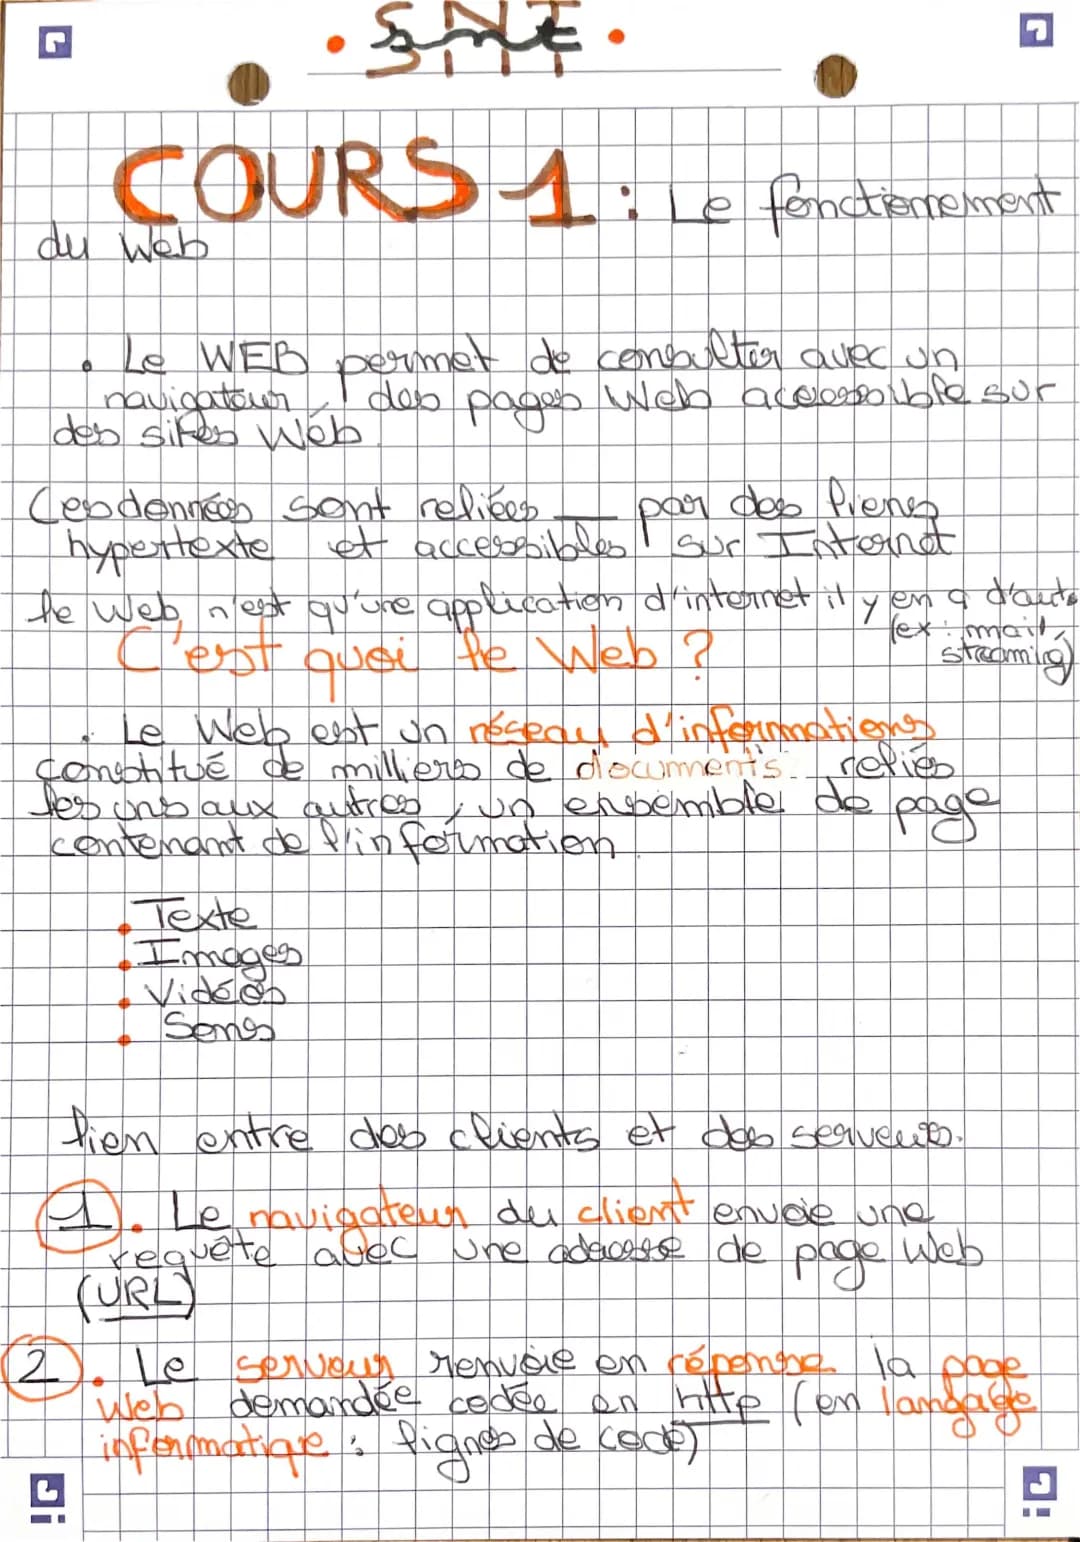 SNT
COURS 1 : Le fonctionnement
du Web
• Le WEB permet de consulter avec un
navigateur, des pages Web accessible sur
des sites Web.
Ces données sont reliées par des liens
hypertexte et accessibles sur Internet
le Web, n'est qu'une application d'internet il y en a d'autres
(ex : mail,
streaming)
C'est quoi le Web ?
• Le Web est un réseau d'informations
constitué de milliers de documents reliés
les uns aux autres, un ensemble de page
contenant de l'information.
• Texte
• Images
• Vidéos
• Sons
lien entre des clients et des serveurs.
1. Le navigateur du client envoie une
requête avec une adresse de page Web
(URL)
2. Le serveur renvoie en réponse la page
Web demandée codée en http (en langage
informatique : lignes de code)